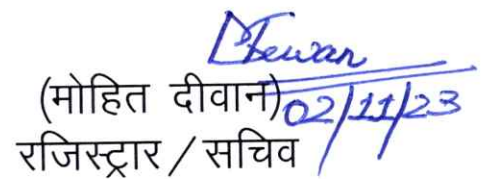 (मोहित दीवान)
02/11/23
रजिस्ट्रार / सचिव